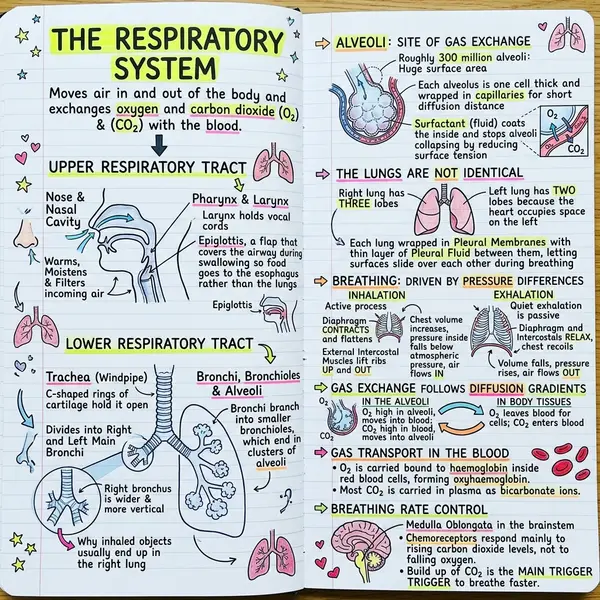 THE RESPIRATORY
SYSTEM
Moves air in and out of the body and
exchanges oxygen and carbon dioxide (O₂)
& (CO₂) with the blood.
UPPER RESPIRATORY TRACT
Nose &
Nasal
Cavity
Warms,
Moistens
& Filters
incoming air
Pharynx & Larynx
Larynx holds vocal
cords
Epiglottis, a flap that
covers the airway during
swallowing so food
goes to the esophagus
rather than the lungs
Epiglottis
LOWER RESPIRATORY TRACT
Trachea (Windpipe)
C-shaped rings of
cartilage hold it open
Divides into Right
and Left Main
Bronchi
Right bronchus
is wider &
more vertical
Why inhaled objects
usually end up in
the right lung
Bronchi, Bronchioles
& Alveoli
Bronchi branch
into smaller
bronchioles,
which end in
clusters of
alveoli
ALVEOLI: SITE OF GAS EXCHANGE
Roughly 300 million alveoli:
Huge surface area
Each alveolus is one cell thick and
wrapped in capillaries for short
diffusion distance
Surfactant (fluid) coats
the inside and stops alveoli
collapsing by reducing
surface tension
O₂
CO₂
THE LUNGS ARE NOT IDENTICAL
Right lung has
THREE lobes
Left lung has TWO
lobes because the
heart occupies space
on the left
Each lung wrapped in Pleural Membranes with
thin layer of Pleural Fluid between them, letting
surfaces slide over each other during breathing
BREATHING: DRIVEN BY PRESSURE DIFFERENCES
INHALATION
Active process
Diaphragm
CONTRACTS
and flattens
External Intercostal
Muscles lift ribs
UP and OUT
Chest volume
increases,
pressure inside
falls below
atmospheric
pressure, air
flows IN
EXHALATION
Quiet exhalation
is passive
Diaphragm and
Intercostals RELAX,
chest recoils
Volume falls, pressure
rises, air flows OUT
GAS EXCHANGE FOLLOWS DIFFUSION GRADIENTS
IN THE ALVEOLI
O₂
CO₂
O₂ high in alveoli,
moves into blood;
CO₂ high in blood,
moves into alveoli
IN BODY TISSUES
O₂ leaves blood for
cells; CO₂ enters blood
GAS TRANSPORT IN THE BLOOD
• O₂ is carried bound to haemoglobin inside
red blood cells, forming oxyhaemoglobin.
• Most CO₂ is carried in plasma as bicarbonate ions.
BREATHING RATE CONTROL
Medulla Oblongata in the brainstem
• Chemoreceptors respond mainly to
rising carbon dioxide levels, not to
falling oxygen.
• Build up of CO₂ is the MAIN TRIGGER
TRIGGER to breathe faster.